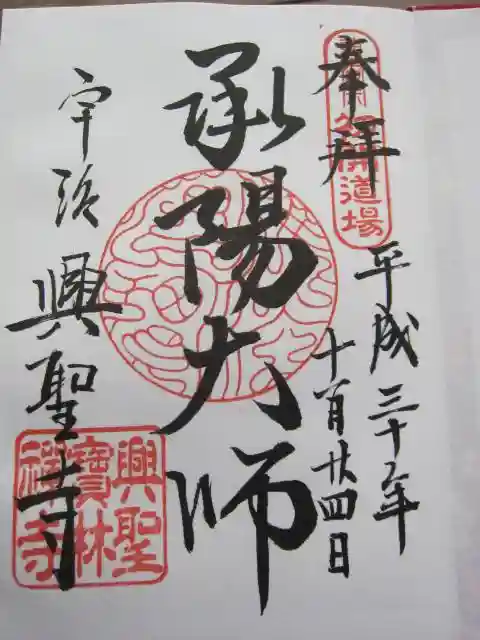 奉拝
平成三十年
十月廿四日
承陽大師
宇治
興聖寺
道場
興聖
寶林
禅寺